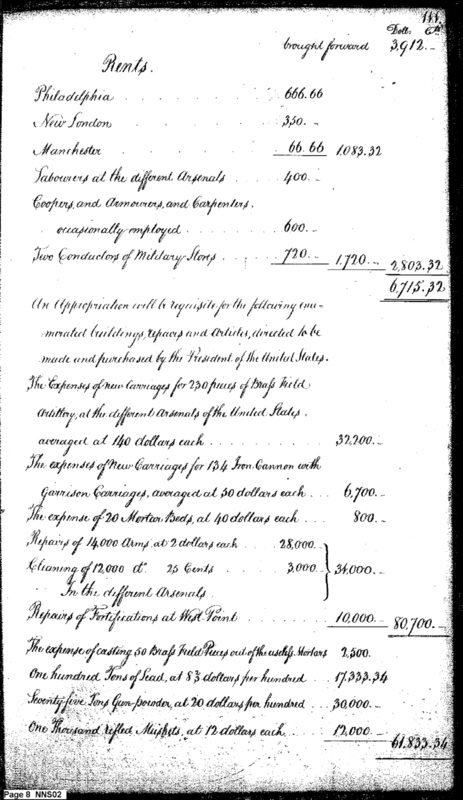 111.
Dolls. Cts.
brought forward 3,912.-
Rents.
Philadelphia . . . . . 666.66
New London . . . . . 350.-
Manchester . . . . . 66.66 1083.32
Labourers at the different Arsenals . . . . 400.-
Coopers, and Armourers, and Carpenters,
occasionally employed . . . . 600.-
Two Conductors of Military Stores . . . . 720.- 1,720.- 2,803.32
6,715.32
An Appropriation will be requisite for the following enu-
merated buildings, repairs and Articles, directed to be
made and purchased by the President of the United States.
The Expenses of new Carriages for 230 pieces of Brass Field
Artillery, at the different Arsenals of the United States.
averaged at 140 dollars each . . . . . 32,200.-
The expenses of New Carriages for 134 Iron Cannon with
Garrison Carriages, averaged at 50 dollars each . . . 6,700.-
The expense of 20 Mortar Beds, at 40 dollars each . . . 800.-
Repairs of 14,000 Arms at 2 dollars each . . . 28,000.-
Cleaning of 12,000 do. 25 Cents . . . 3,000.- 31,000.-
In the different Arsenals
Repairs of Fortifications at West Point . . . . 10,000.- 80,700.-
The expense of casting 50 Brass Field Pieces out of the useless Mortars 2,500.
One hundred Tons of Lead, at 8⅔ dollars per hundred . . . 17,333.34
Seventy five Tons Gun-powder, at 20 dollars per hundred . . 30,000.-
One Thousand rifled Muskets, at 12 dollars each . . . 12,000.-
61.833.34
Page 8 NNS02